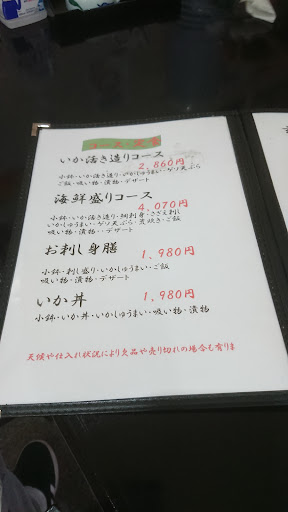 コース・定食
いか活き造りコース
2,860円
小鉢・いか活き造り・いかしゅうまい・ゲソ天ぷら
ご飯・吸い物・漬物・デザート
海鮮盛りコース
4,070円
小鉢・いか活き造り・鯛刺身・さざえ刺し
いかしゅうまい・ゲソ天ぷら・煮炊き・ご飯
吸い物・漬物・・デザート
お刺し身膳 1,980円
小鉢・刺し盛り・いかしゅうまい・ご飯
吸い物・漬物・デザート
いか丼 1,980円
小鉢・いか丼・いかしゅうまい・吸い物・漬物
天候や仕入れ状況により欠品や売り切れの場合も有りま